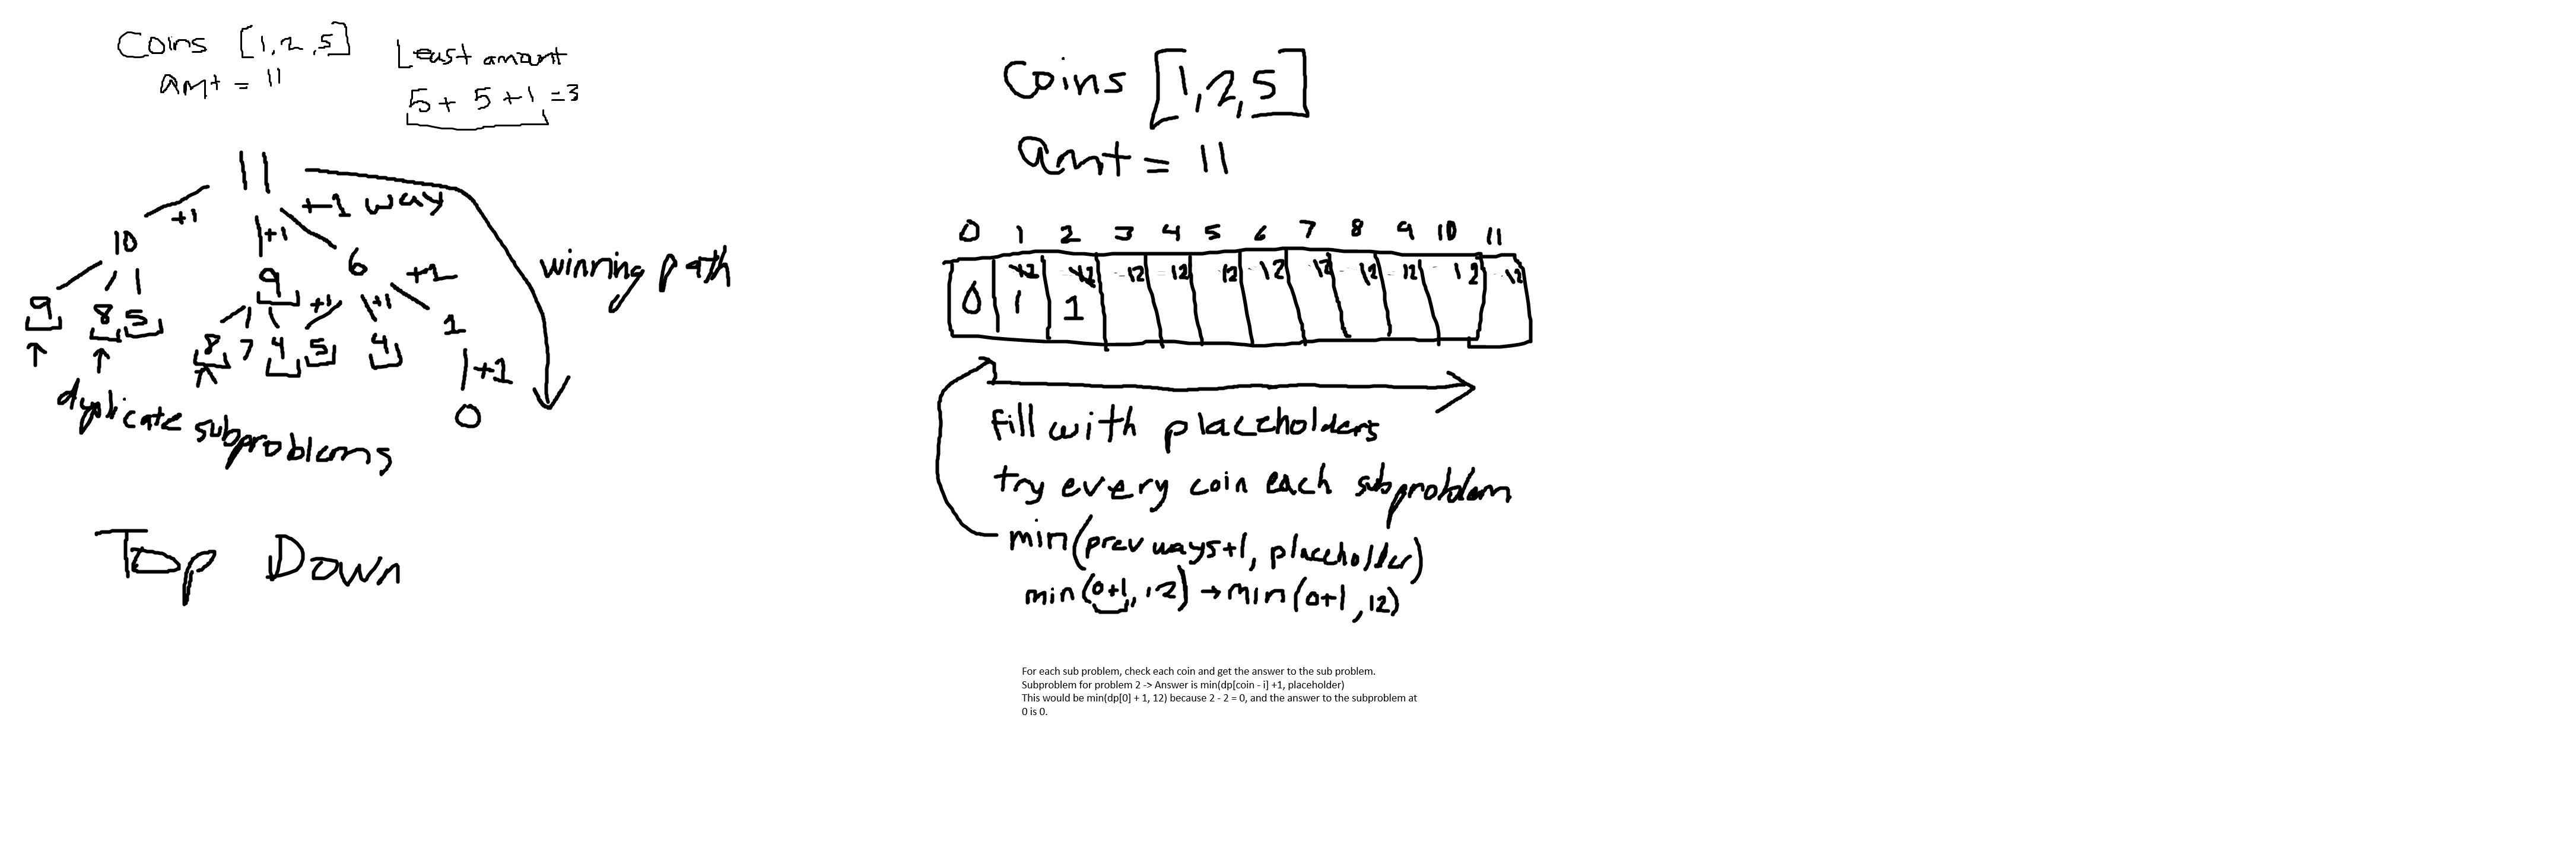 Coins [1,2,5]
amt = 11
Least amount
5+ 5 +1 =3
11
+1
+1
+1 way
10
9
6
+1
winning path
9
8
5
+1
+1
8
7
4
5
4
1
+1
0
duplicate subproblems
Top Down
Coins [1,2,5]
amt = 11
0 1 2 3 4 5 6 7 8 9 10 11
12 12 12 12 12 12 12 12 12 12 12
0 1 1
fill with placeholders
try every coin each subproblem
min(prev ways+1, placeholder)
min(0+1, 12) → min(0+1, 12)
For each sub problem, check each coin and get the answer to the sub problem.
Subproblem for problem 2 -> Answer is min(dp[coin - i] +1, placeholder)
This would be min(dp[0] + 1, 12) because 2 - 2 = 0, and the answer to the subproblem at
0 is 0.